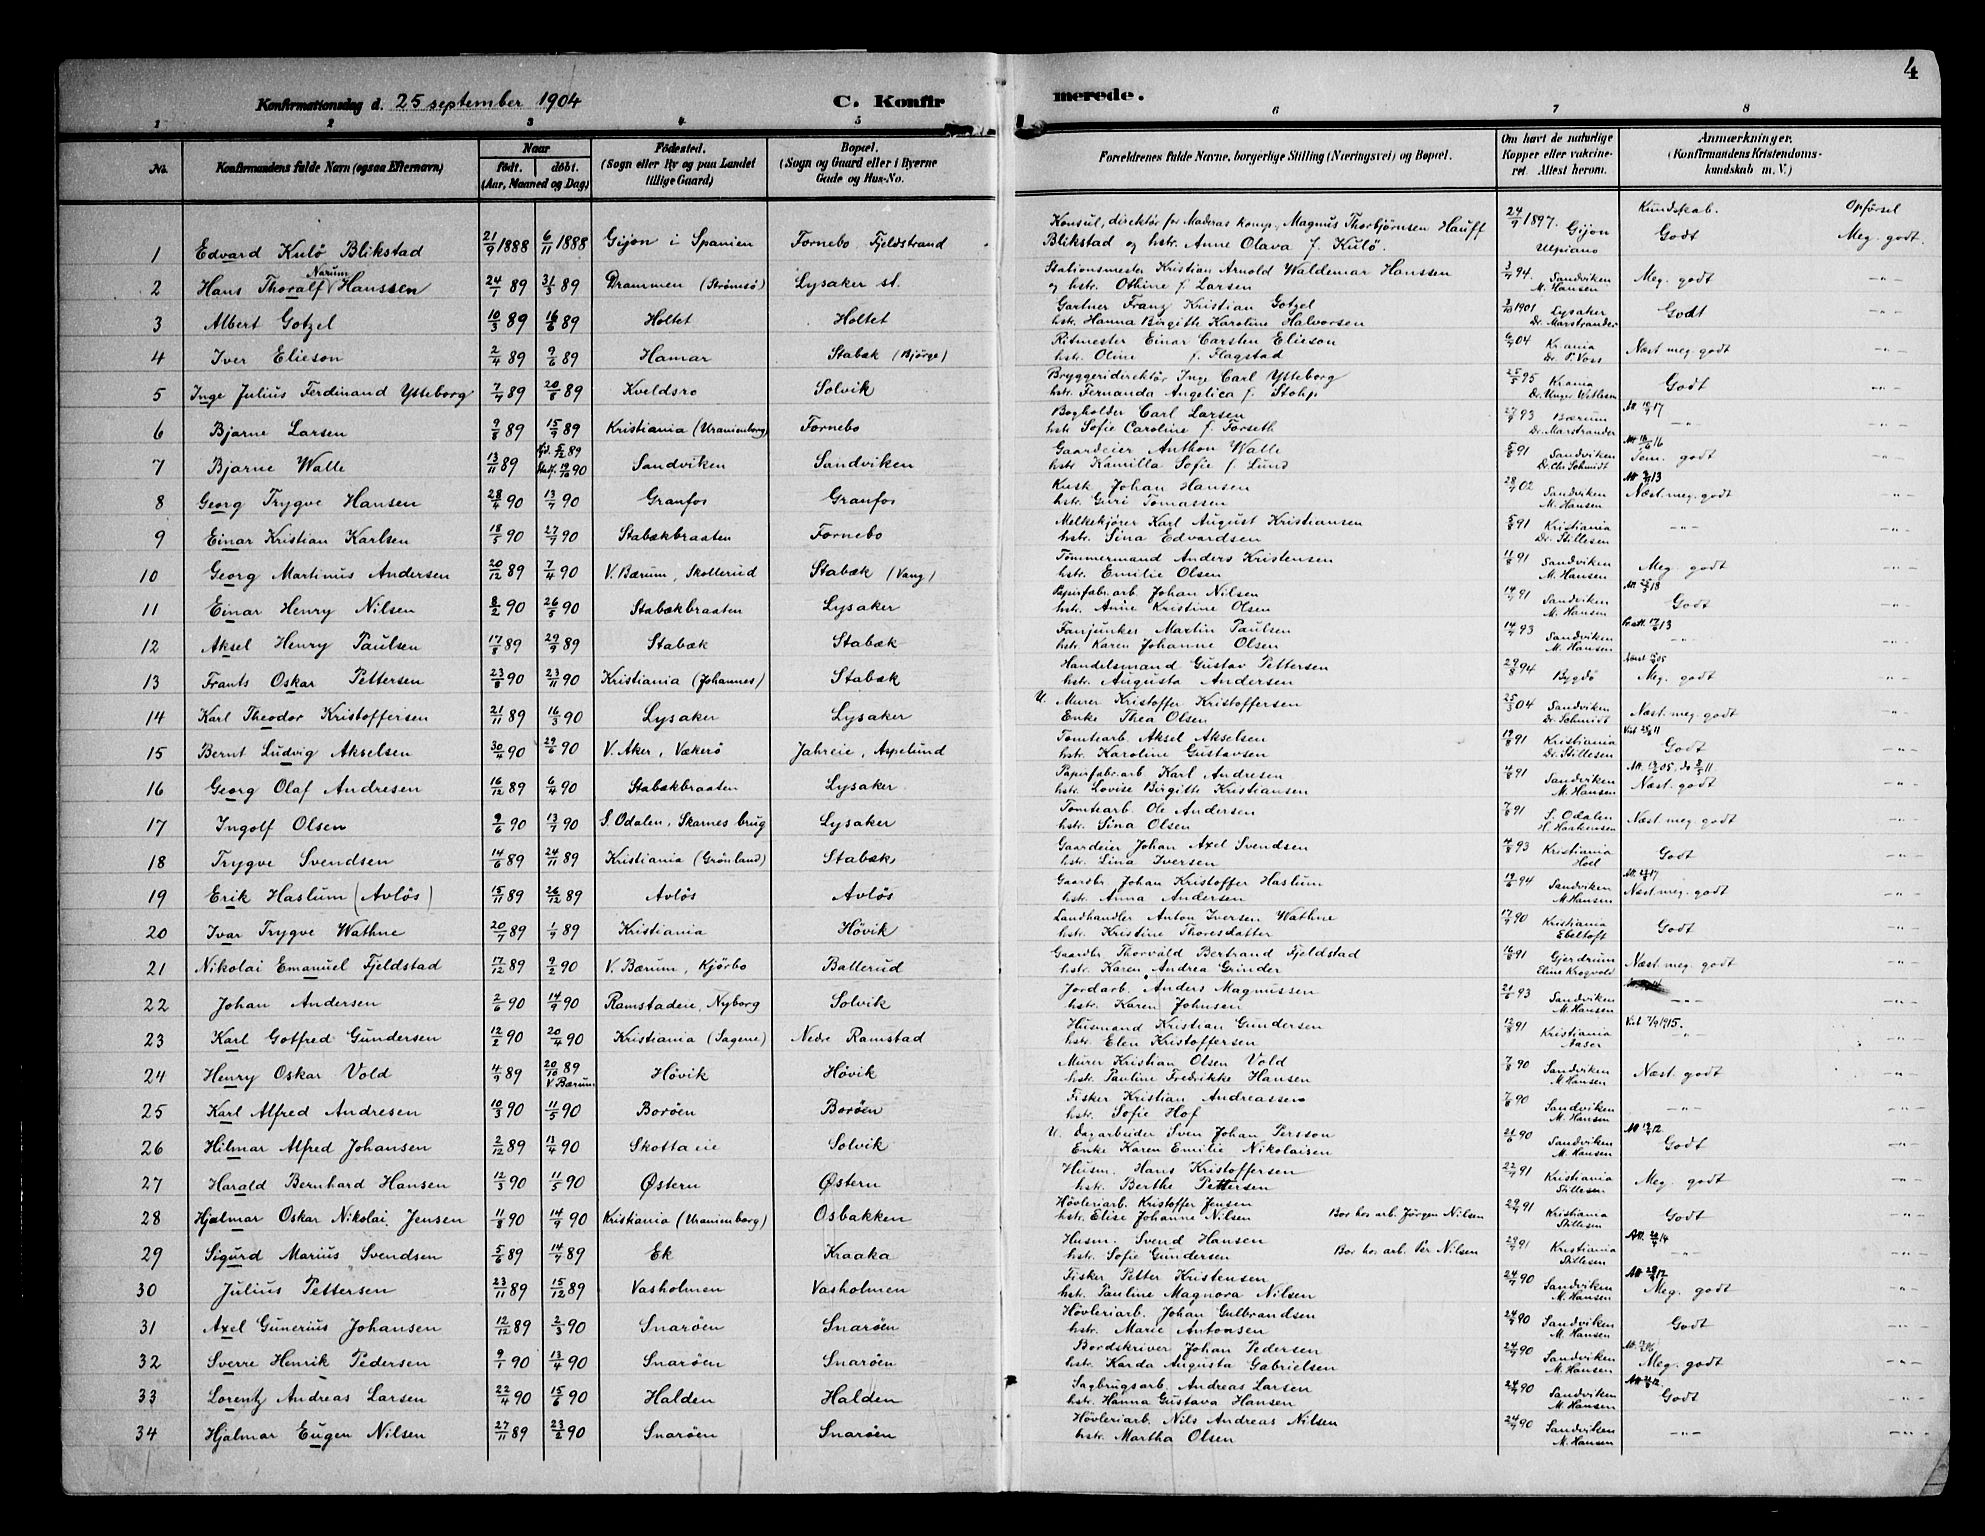 4
Konfirmationsdag d. 25 september 1904 C. Konfirmerede.
1 2 3 4 5 6 7 8
No. Konfirmandens fulde Navn (ogsaa Efternavn) Naar født. døbt. (Aar, Maaned og Dag) Fødested. (Sogn eller By og paa Landet tillige Gaard) Bopæl. (Sogn og Gaard eller i Byerne Gade og Hus-No. Forældrenes fulde Navne, borgerlige Stilling (Næringsvei) og Bopæl. Om havt de naturlige Kopper eller vakcineret. Attest herom. Anmærkninger. (Konfirmandens Kristendomskundskab m. V.)
Kundskab. Opførsel
1 Edvard Kulø Blikstad 21/9 1888 6/11 1888 Gijon i Spanien Fornebo, Fjeldstrand Konsul, direktør for Maderas komp. Magnus Thorbjørnsen Hauff Blikstad og hstr. Anne Olava f. Kulø. 24/9 1897. Gijon Ulpiano Godt Meg. godt.
2 Hans Thoralf Narum Hanssen 24/1 89 31/3 89 Drammen (Strømsø) Lysaker st. Stationsmester Kristian Arnold Waldemar Hanssen og hstr. Othine f. Larsen 3/7 94. Sandviken M. Hansen Meg. godt -"-
3 Albert Gotzel 10/3 89 16/6 89 Holtet Holtet Gartner Franz Kristian Gotzel hstr. Hanna Birgitte Karoline Halvorsen 3/10 1901 Lysaker Dr. Marstrander Godt
4 Iver Elieson 2/4 89 9/6 89 Hamar Stabæk (Bjørge) Ritmester Einar Carsten Elieson hstr. Oline f. Flagstad 6/9 04 Krania Dr. P. Voss Næst meg. godt -"-
5 Inge Julius Ferdinand Ytteborg 7/7 89 20/8 89 Kveldsro Solvik Bryggeridirektør Inge Carl Ytteborg hstr. Fernanda Angelica f. Stolp 25/5 95 Krania Dr. Unger Vetlesen Godt -"-
6 Bjarne Larsen 9/8 89 15/9 89 Kristiania (Uranienborg) Fornebo Bogholder Carl Larsen hstr. Sofie Caroline f. Forseth 27/6 93 Bærum Dr. Marstrander -"- -"-
7 Bjarne Walle 13/11 89 Sandviken Sandviken Gaardeier Anthon Walle hstr. Kamilla Sofie f. Lund 5/8 91 Sandviken Dr. Chr. Schmidt Tem. godt -"-
8 Georg Trygve Hansen 28/4 90 13/7 90 Granfos Granfos Kusk Johan Hansen hstr. Guri Tomassen 28/7 02 Sandviken M. Hansen Næst meg. godt -"-
9 Einar Kristian Karlsen 18/5 90 27/7 90 Stabækbraaten Fornebo Melkekjører Karl August Kristiansen hstr. Sina Edvardsen 5/8 91 Kristiania Dr. Stillesen -"- -"-
10 Georg Martinus Andersen 20/12 89 7/4 90 V. Bærum, Skollerud Stabæk (Vang) Tømmermand Anders Kristensen hstr. Emilie Olsen 11/8 91 Sandviken M. Hansen Meg. godt -"-
11 Einar Henry Nilsen 8/2 90 26/5 90 Stabækbraaten Lysaker Papirfabr. arb. Johan Nilsen hstr. Anne Kristine Olsen 14/7 91 Sandviken M. Hansen Godt -"-
12 Aksel Henry Paulsen 17/8 89 29/9 89 Stabæk Stabæk Fanjunker Martin Paulsen hstr. Karen Johanne Olsen 14/7 93 Sandviken M. Hansen -"- -"-
13 Frants Oskar Pettersen 23/8 90 23/11 90 Kristiania (Johannes) Stabæk Handelsmand Gustav Pettersen hstr. Augusta Andersen 29/8 94 Bygdø Meg. godt -"-
14 Karl Theodor Kristoffersen 21/11 89 16/3 90 Lysaker Lysaker U. Murer Kristoffer Kristoffersen Enke Thea Olsen 25/3 04 Sandviken Dr. Schmidt Næst meg. godt -"-
15 Bernt Ludvig Akselsen 30/4 90 29/6 90 V. Aker, Vækerø Jahreie, Aspelund Tomtearb. Aksel Akselsen hstr. Karoline Gustavsen 19/8 91 Kristiania Dr. Stillesen Godt -"-
16 Georg Olaf Andresen 16/12 89 6/4 90 Stabækbraaten Lysaker Papirfabr. arb Karl Andresen hstr. Lovise Birgitte Kristiansen 4/8 91 Sandviken M. Hansen Næst. godt -"-
17 Ingolf Olsen 9/6 90 13/7 90 S. Odalen, Skarnes brug Lysaker Tomtearb. Ole Andersen hstr. Sina Olsen 7/8 91 S. Odalen H. Haakensen Næst meg. godt -"-
18 Trygve Svendsen 14/6 89 24/11 89 Kristiania (Grønland) Stabæk Gaardeier Johan Axel Svendsen hstr. Lina Iversen 4/8 93 Kristiania Hoel Godt -"-
19 Erik Haslum (Avløs) 15/11 89 26/12 89 Avløs Avløs Gaardbr. Johan Kristoffer Haslum hstr. Anna Andersen 19/6 94 Sandviken M. Hansen Næst meg. godt -"-
20 Ivar Trygve Wathne 20/7 89 1/9 89 Kristiania Høvik Landhandler Anton Iversen Wathne hstr. Kristine Thoresdatter 17/9 90 Kristiania Ebeltoft Godt -"-
21 Nikolai Emanuel Fjeldstad 17/12 89 9/2 90 V. Bærum, Kjørbo Ballerud Gaardbr. Thorvald Bertrand Fjeldstad hstr. Karen Andrea Grinder 16/6 91 Gjerdrum Eline Krogvold Næst meg. godt -"-
22 Johan Andersen 2/6 90 14/9 90 Ramstadeie, Nyborg Solvik Jordarb. Anders Magnussen hstr. Karen Johnsen 21/6 93 Sandviken M. Hansen -"- -"-
23 Karl Gotfred Gundersen 12/2 90 20/4 90 Kristiania (Sagene) Nedre Ramstad Husmand Kristian Gundersen hstr. Elen Kristoffersen 12/8 91 Kristiania Aaser Vid 7/9 1915. -"- -"-
24 Henry Oskar Vold 4/9 89 20/10 89 V. Bærum Høvik Høvik Murer Kristian Olsen Vold hstr. Pauline Fredrikke Hansen 7/8 90 Sandviken M. Hansen Næst. godt -"-
25 Karl Alfred Andresen 10/3 90 11/5 90 Borøen Borøen Fisker Kristian Andreassen hstr. Sofie Hof 7/8 90 Sandviken M. Hansen -"- -"-
26 Hilmar Alfred Johansen 2/12 89 13/4 90 Skottaeie Solvik U. Dagarbeider Sven Johan Persson Enke Karen Emilie Nikolaisen 21/6 90 Sandviken M. Hansen Godt -"-
27 Harald Bernhard Hansen 12/3 90 11/5 90 Østern Østern Husm. Hans Kristoffersen hstr. Berthe Pettersen 22/7 91 Kristiania Stillesen Meg. godt -"-
28 Hjalmar Oskar Nikolai Jensen 11/8 90 14/9 90 Kristiania (Uranienborg) Osbakken Høvleriarb. Kristoffer Jensen hstr. Elise Johanne Nilsen Bor hos arb. Jørgen Nilsen 29/7 91 Kristiania Stillesen Godt -"-
29 Sigurd Marius Svendsen 5/6 89 14/7 89 Ek Kraaka Husm. Svend Hansen hstr. Sofie Gundersen Bor hos arb. Per Nilsen 29/7 91 Kristiania Stillesen -"- -"-
30 Julius Pettersen 23/11 89 15/12 89 Vasholmen Vasholmen Fisker Petter Kristensen hstr. Pauline Magnora Nilsen 24/7 90 Sandviken M. Hansen Meg. godt -"-
31 Axel Gunerius Johansen 12/12 89 2/3 90 Snarøen Snarøen Høvleriarb. Johan Gulbrandsen hstr. Marie Antonsen 24/9 90 Sandviken M. Hansen Godt -"-
32 Sverre Henrik Pedersen 9/1 90 13/4 90 Snarøen Snarøen Bordskriver Johan Pedersen hstr. Karda Augusta Gabrielsen 24/9 90 Sandviken M. Hansen Meg. godt -"-
33 Lorentz Andreas Larsen 22/4 90 15/6 90 Halden Halden Sagbrugsarb. Andreas Larsen hstr. Hanna Gustava Hansen 24/9 90 Sandviken M. Hansen Godt -"-
34 Hjalmar Eugen Nilsen 27/11 89 23/2 90 Snarøen Snarøen Høvleriarb. Nils Andreas Nilsen hstr. Martha Olsen 24/9 90 Sandviken M. Hansen -"- -"-